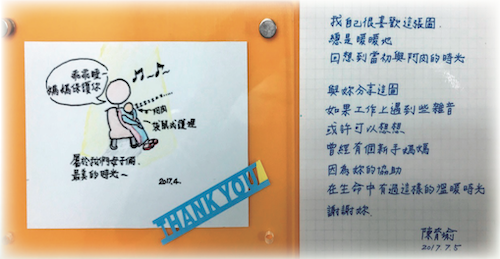 乖乖睡~
媽媽保護你
阿肉
袋鼠式護理
屬於我們母子倆
最美的時光~
2017.4.
THANK YOU
我自己很喜歡這張圖
總是暖暖地
回想到當初與阿肉的時光
與妳分享這圖
如果工作上遇到些雜音
或許可以想想
曾經有個新手媽媽
因為妳的協助
在生命中有過這樣的溫暖時光
謝謝妳
陳育瑜
2017.7.5